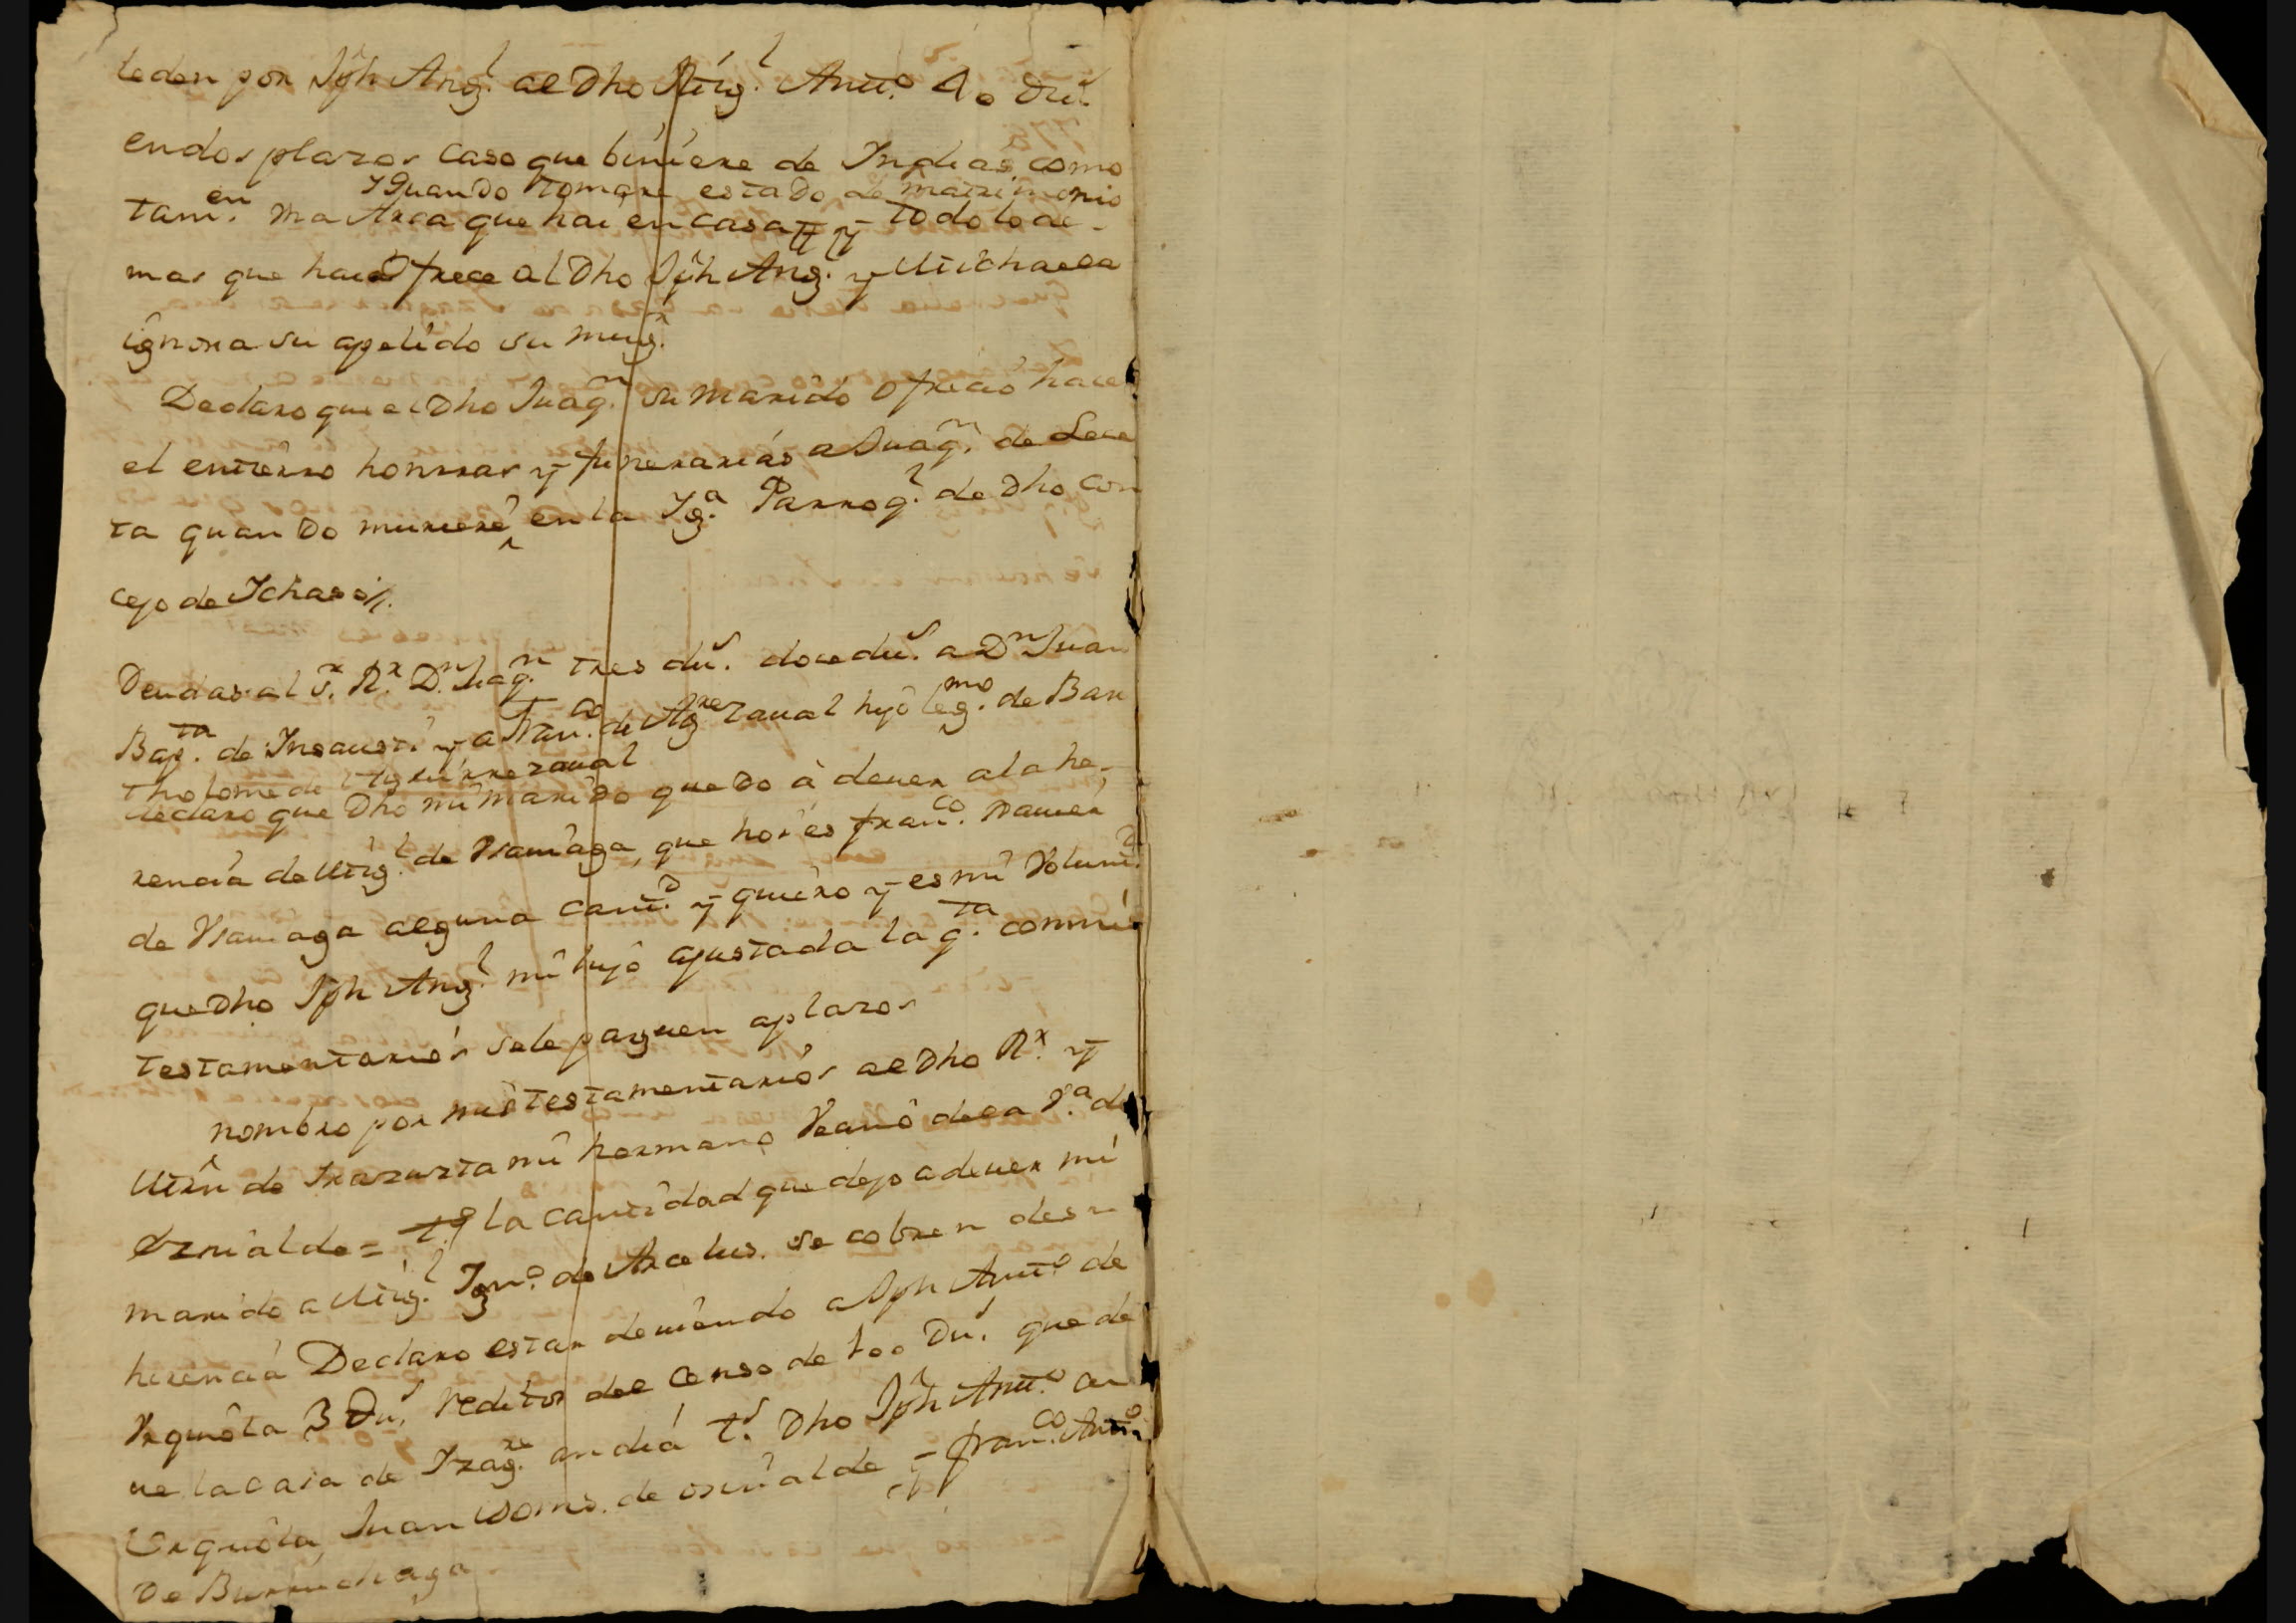 le den por Jph Ang.l al Dho Mig.l Antt.o 40 du.s
en dos plazos caso que biniere de Indias, como
y Quando tomare estado de matrimonio
tam.en ma Arca que hai en casa y todo lo de-
mas que hai ofrece al Dho Jph Ang.l y Michaela
ignora su apelido su mug.r
Declaro que el Dho Juaq.n su marido ofrecio hacer
el entierro honrras y funerarias a Juaq.n de Lecu
ta quando muriere en la Yg.a Parroq.l de Dho con
cejo de Ichaso
Deudas al S.r R.r D.n Juaq.n tres du.s doce du.s a D.n Juan
Bap.ta de Insausti y a Fran.co de Ag.rrezaual hijo leg.mo de Bar
tholome de Aguirrezaual
declaro que Dho mi marido quedo à deuer a la he-
rencia de Mig.l de Vsamaga, que hoi es fran.co Xauier
de Vsamaga alguna cant.d y quiero y es mi Volunt.d
que Dho Jph Ang.l mi hijo ajustada la q.ta con mis
testamentarios se le paguen a plazos
nombro por mis testamentarios al Dho R.r y
Mrn de Irazusta mi hermano Vecino de la V.a de
Ezmialde = t.o la cantidad que dejo a deuer mi
marido a Mig.l Ygn.o de Arcelus. se cobren de su
herencia Declaro estar deuiendo a Jph Antt.o de
Vrquiola 3 Du.s reditos del Censo de 100 Du.s que de
ue la casa de Yzag.re andia t.s Dho Jph Antt.o de
Vrquiola, Juan Doms. de osinalde y fran.co Antt.o
De Burruchaga